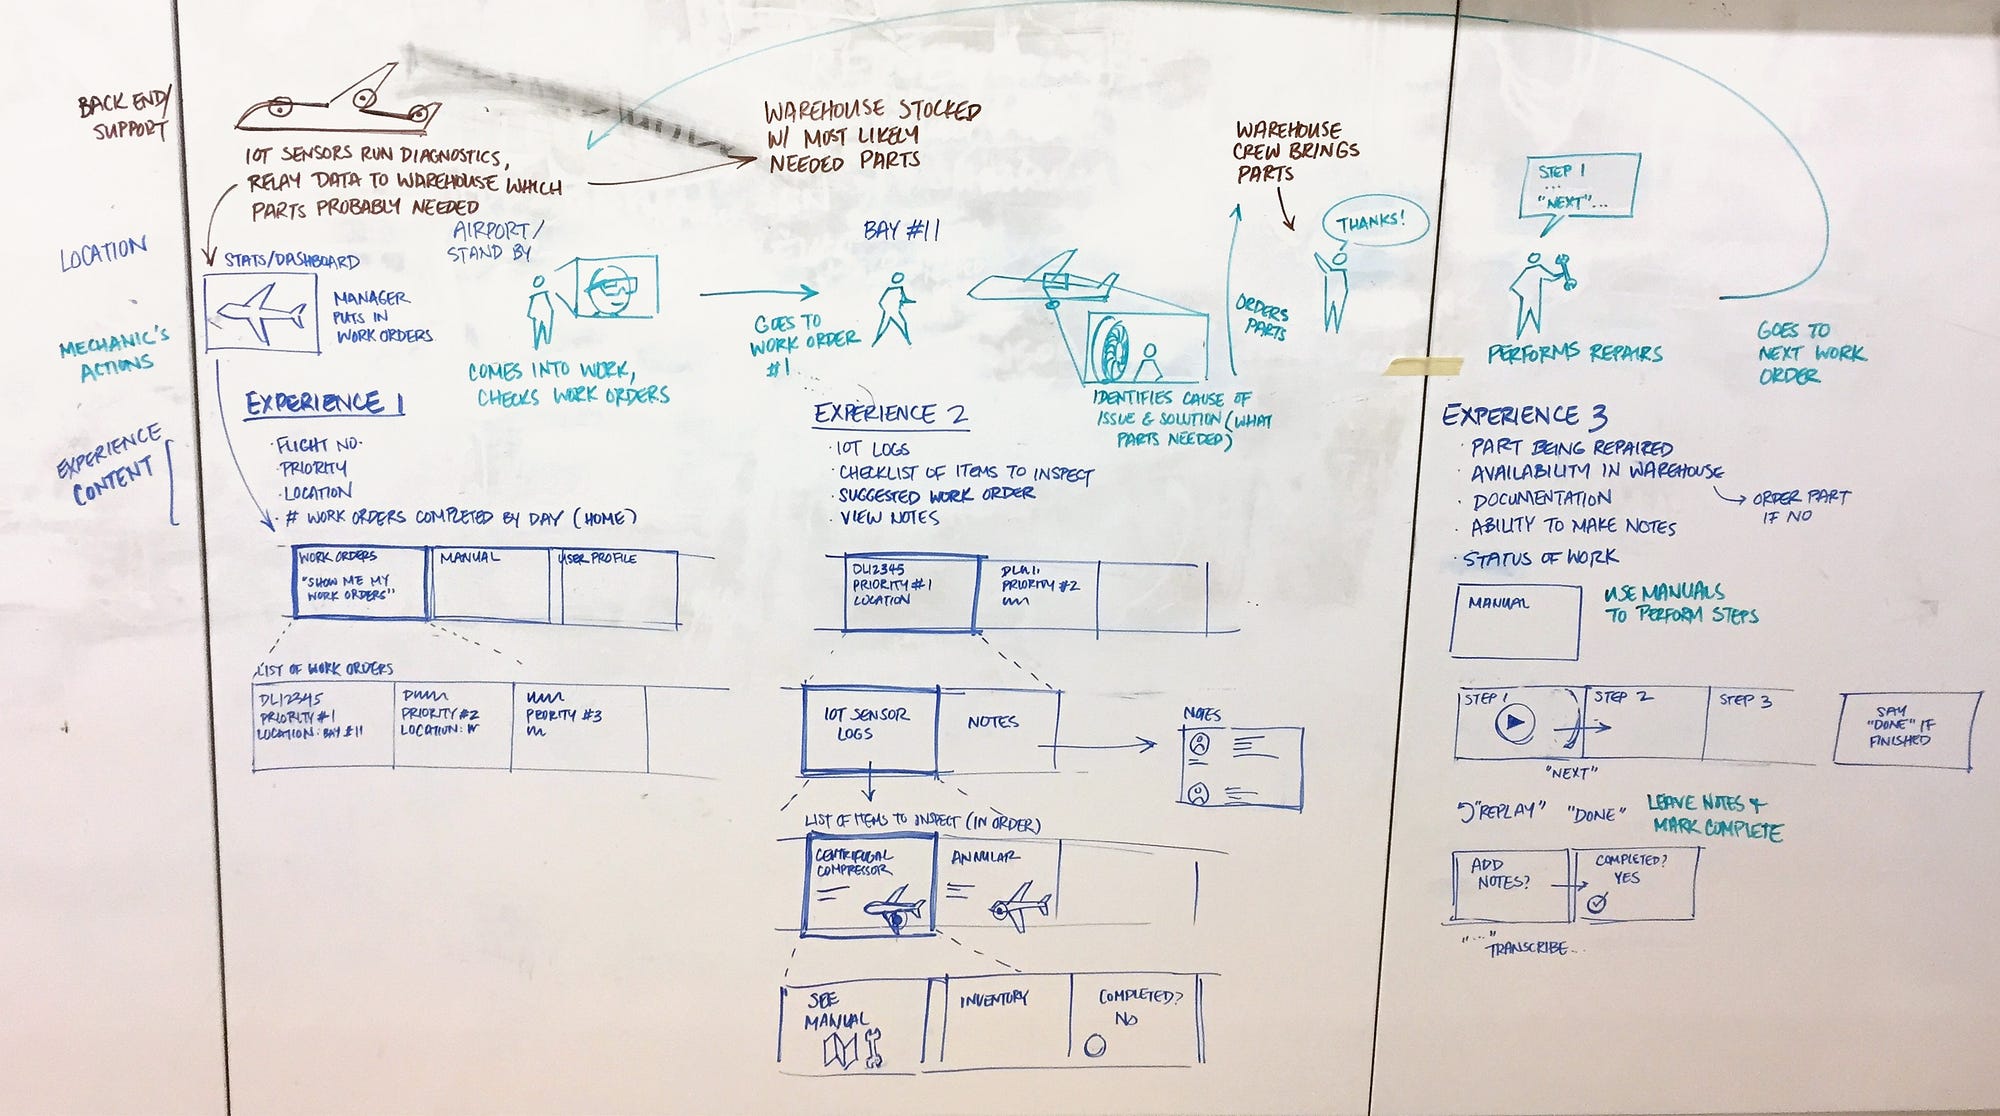 BACK END/
SUPPORT
IOT SENSORS RUN DIAGNOSTICS,
RELAY DATA TO WAREHOUSE WHICH
PARTS PROBABLY NEEDED
WAREHOUSE STOCKED
W/ MOST LIKELY
NEEDED PARTS
WAREHOUSE
CREW BRINGS
PARTS
LOCATION
AIRPORT/
STAND BY
BAY #11
MECHANIC'S
ACTIONS
STATS/DASHBOARD
MANAGER
PUTS IN
WORK ORDERS
COMES INTO WORK,
CHECKS WORK ORDERS
GOES TO
WORK ORDER
#1
IDENTIFIES CAUSE OF
ISSUE & SOLUTION (WHAT
PARTS NEEDED)
ORDERS
PARTS
THANKS!
STEP 1
...
"NEXT"...
PERFORMS REPAIRS
GOES TO
NEXT WORK
ORDER
EXPERIENCE
CONTENT
EXPERIENCE 1
· FLIGHT NO.
· PRIORITY
· LOCATION
· # WORK ORDERS COMPLETED BY DAY (HOME)
WORK ORDERS
"SHOW ME MY
WORK ORDERS"
MANUAL
USER PROFILE
LIST OF WORK ORDERS
DL12345
PRIORITY #1
LOCATION: BAY #11
PRIORITY #2
LOCATION:
PRORITY #3
EXPERIENCE 2
· IOT LOGS
· CHECKLIST OF ITEMS TO INSPECT
· SUGGESTED WORK ORDER
· VIEW NOTES
DL12345
PRIORITY #1
LOCATION
PRIORITY #2
IOT SENSOR
LOGS
NOTES
NOTES
LIST OF ITEMS TO INSPECT (IN ORDER)
CENTRIFUGAL
COMPRESSOR
ANNULAR
SEE
MANUAL
INVENTORY
COMPLETED?
NO
EXPERIENCE 3
· PART BEING REPAIRED
· AVAILABILITY IN WAREHOUSE
ORDER PART
IF NO
· DOCUMENTATION
· ABILITY TO MAKE NOTES
· STATUS OF WORK
MANUAL
USE MANUALS
TO PERFORM STEPS
STEP 1
STEP 2
STEP 3
SAY
"DONE" IF
FINISHED
"NEXT"
"REPLAY"
"DONE"
LEAVE NOTES +
MARK COMPLETE
ADD
NOTES?
COMPLETED?
YES
"...."
TRANSCRIBE...